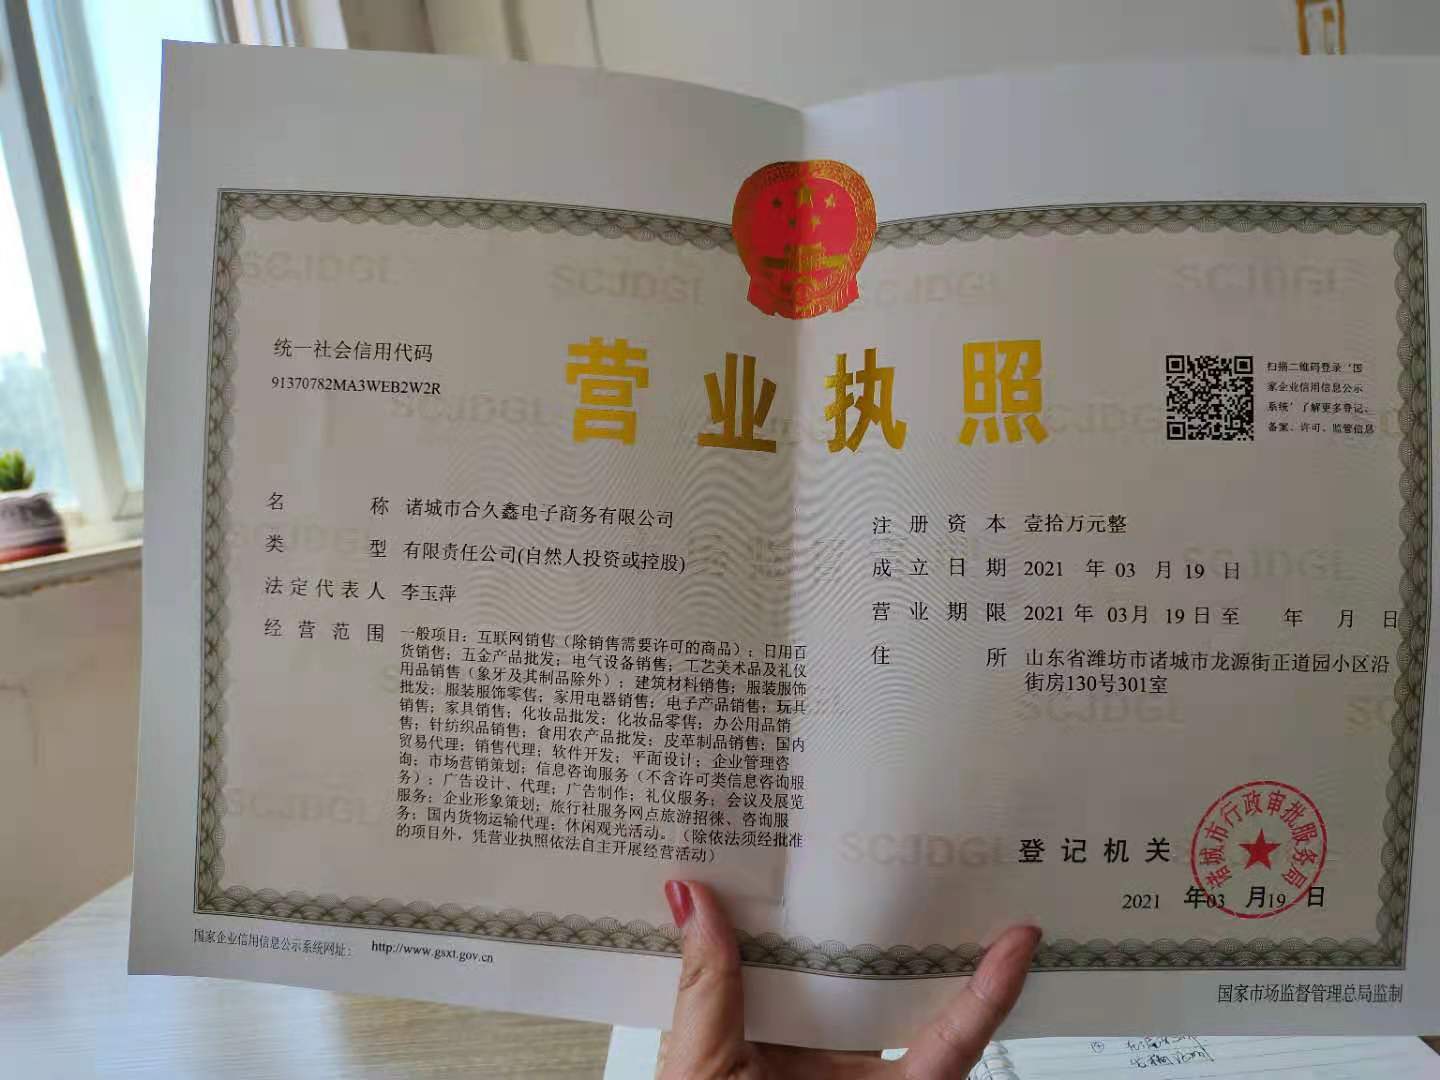 营业执照
统一社会信用代码
91370782MA3WEB2W2R
扫描二维码登录‘国
家企业信用信息公示
系统’了解更多登记、
备案、许可、监管信息
名称 诸城市合久鑫电子商务有限公司
类型 有限责任公司(自然人投资或控股)
法定代表人 李玉萍
经营范围 一般项目：互联网销售（除销售需要许可的商品）；日用百
货销售；五金产品批发；电气设备销售；工艺美术品及礼仪
用品销售（象牙及其制品除外）；建筑材料销售；服装服饰
批发；服装服饰零售；家用电器销售；电子产品销售；玩具
销售；家具销售；化妆品批发；化妆品零售；办公用品销
售；针纺织品销售；食用农产品批发；皮革制品销售；国内
贸易代理；销售代理；软件开发；平面设计；企业管理咨
询；市场营销策划；信息咨询服务（不含许可类信息咨询服
务）；广告设计、代理；广告制作；礼仪服务；会议及展览
服务；企业形象策划；旅行社服务网点旅游招徕、咨询服
务；国内货物运输代理；休闲观光活动。（除依法须经批准
的项目外，凭营业执照依法自主开展经营活动）
注册资本 壹拾万元整
成立日期 2021 年 03 月 19 日
营业期限 2021 年 03月 19 日 至 年 月 日
住所 山东省潍坊市诸城市龙源街正道园小区沿
街房130号301室
登记机关
诸城市行政审批服务局
2021 年03 月19 日
国家企业信用信息公示系统网址： http://www.gsxt.gov.cn
国家市场监督管理总局监制